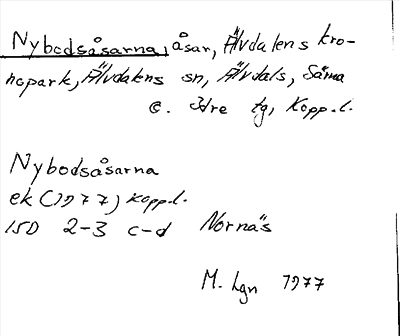 Nybodsåsarna, åsar, Älvdalens kro-
nopark, Älvdalens sn, Älvdals, Särna
o. Idre tg, Kopp.l.
Nybodsåsarna
ek (1977) Kopp.l.
15D 2-3 c-d Nornäs
M. Lgn 1977